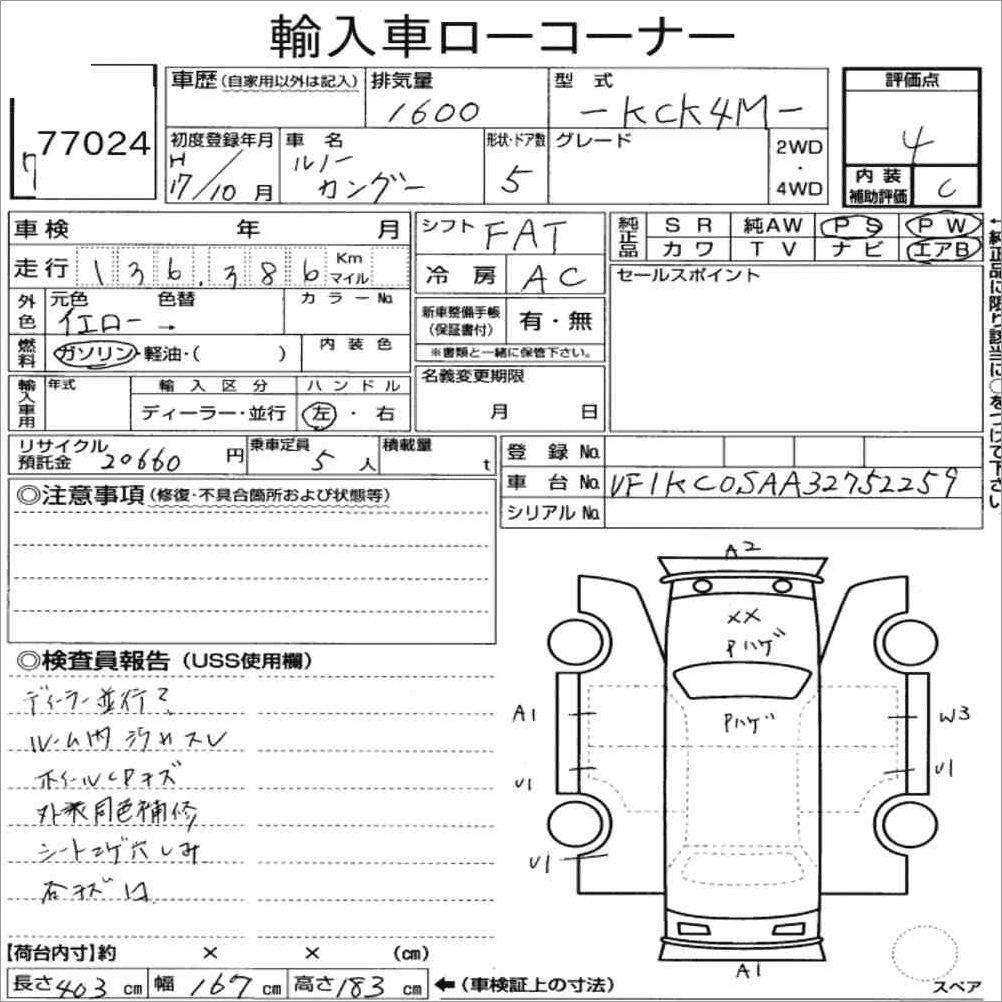 輸入車ローコーナー
77024
ワ
車歴(自家用以外は記入)
排気量
1600
型 式
-KCK4M-
評価点
4
初度登録年月
H
17/10月
車 名
ルノー
カングー
形状・ドア数
5
グレード
2WD
・
4WD
内 装
補助評価
C
車検 年 月
シフト
FAT
純正品
SR 純AW PS PW
カワ TV ナビ エアB
←純正品に限り該当に○をつけて下さい。
走行 136,386 Km
マイル
冷 房 AC
セールスポイント
外色
元色 色替 カラーNo.
イエロー →
新車整備手帳
(保証書付)
有・無
※書類と一緒に保管下さい。
燃料
ガソリン・軽油・( )
内 装 色
輸入車用
年式
輸 入 区 分
ハ ン ド ル
ディーラー・並行
左 ・ 右
名義変更期限
月 日
リサイクル
預託金 20660 円
乗車定員
5 人
積載量
t
登 録 No.
車 台 No. VF1KC0SAA32752259
シリアル No.
◎注意事項(修復・不具合箇所および状態等)
◎検査員報告(USS使用欄)
ディーラー並行?
ルーム内 汚れ スレ
ホイールCPキズ
外装同色補修
シートコゲ穴 しみ
A2
XX
Pハゲ
Pハゲ
A1
W3
U1
U1
U1
A1
スペア
【荷台内寸】約 × × (cm)
長さ 403 cm 幅 167 cm 高さ 183 cm ←(車検証上の寸法)